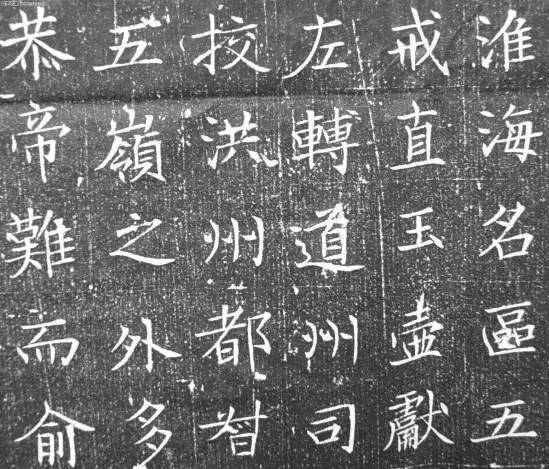 淮海名區五
戒直玉壺獻
左轉道州司
挍洪州都督
五嶺之外多
恭帝難而俞